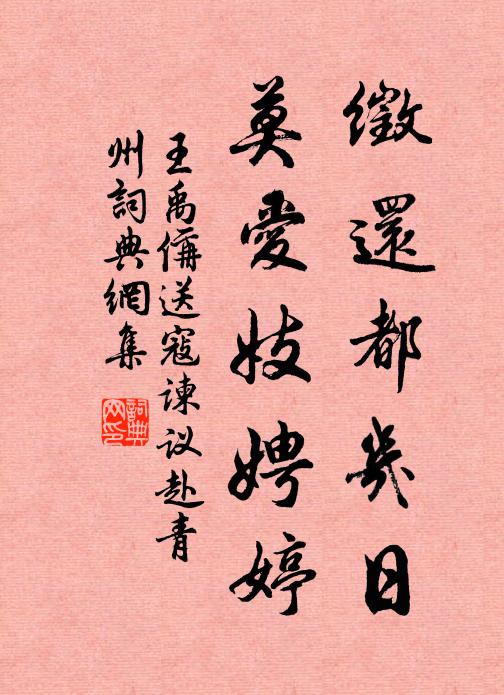 徵還都幾日
莫愛妓娉婷
王禹偁送寇諫议赴青
州詞典網集
詞典网印